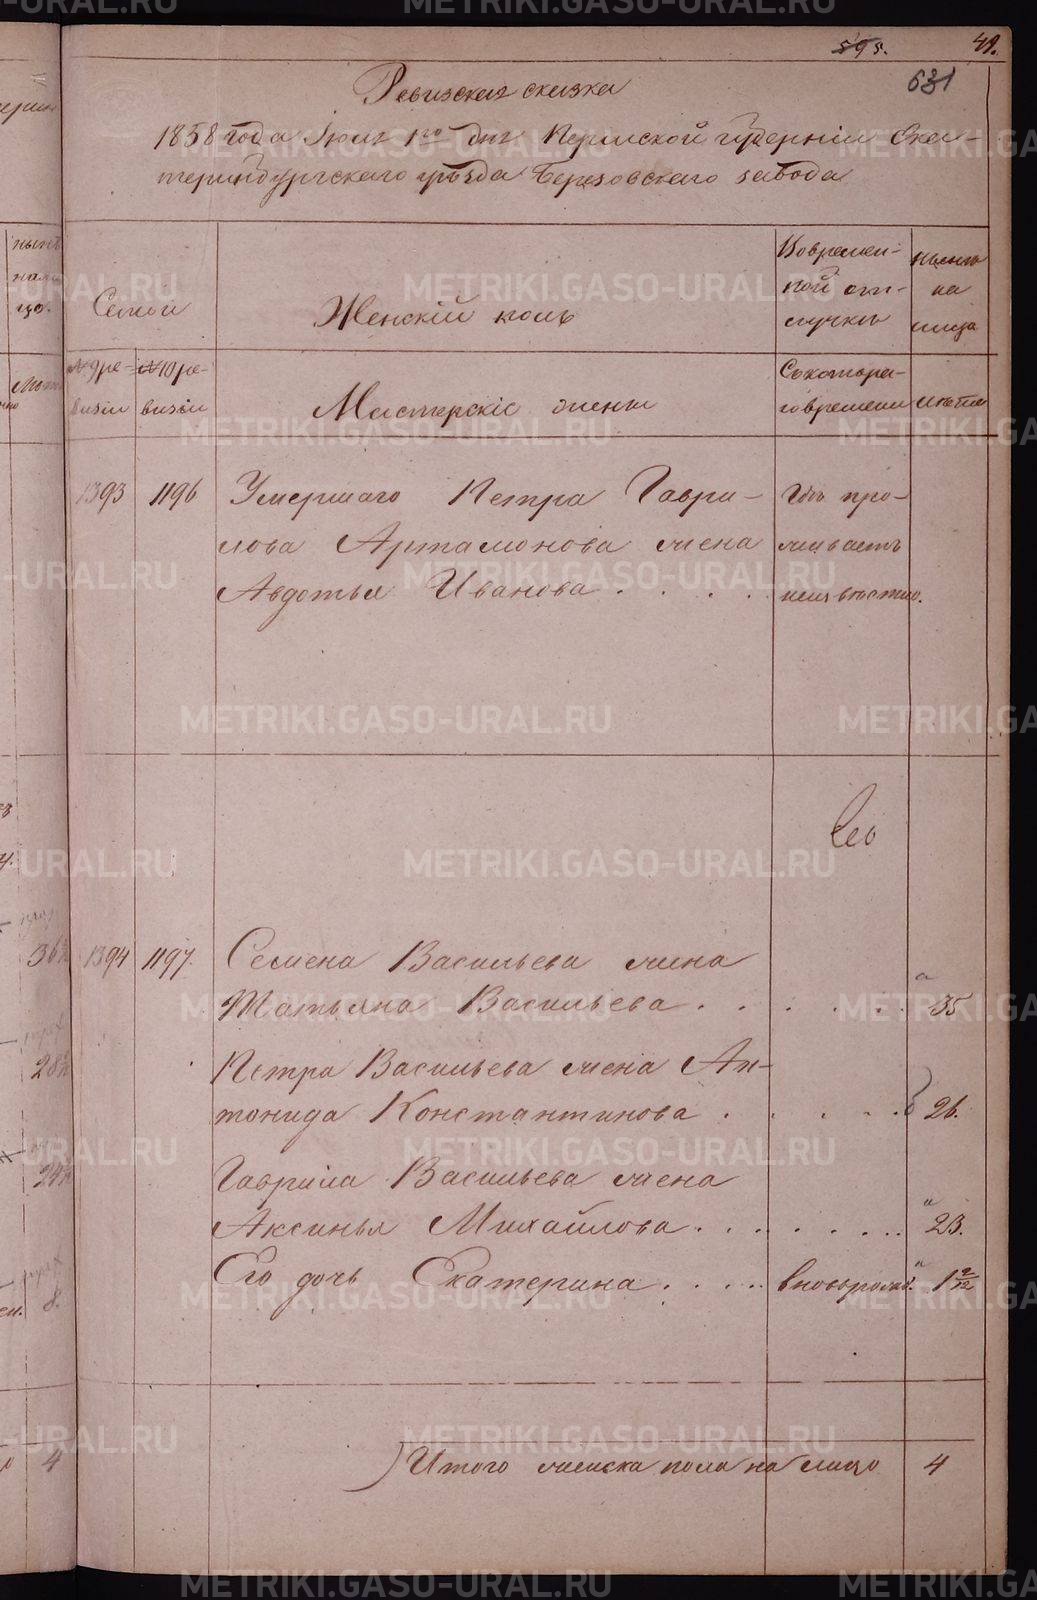 595. 49.
631
Ревизская сказка
1858 года Июля 1го дня Пермской губернии Ека-
теринбургскаго уѣзда Березовскаго завода
Семьи
Женскій полъ
Во времен-
ной от-
лучкѣ
Нынѣ
на
лицо
№ 9 ре-
визіи
№ 10 ре-
визіи
Мастерскіе жены
Съ котора-
го времени
Лѣта
1393 1196 Умершаго Петра Гаври-
лова Артамонова жена
Авдотья Иванова . . . .
Гдѣ про-
живаетъ
неизвѣстно.
1394 1197. Семена Васильева жена
Татьяна Васильева . . . . . . 35
Петра Васильева жена Ан-
тонида Константинова . . . . . 26.
Гаврила Васильева жена
Аксинья Михайлова . . . . . . . 23.
Его дочь Екатерина . . . . . вновьрожд. 1 2/12
Итого женска пола на лицо 4
36
28
24
8.
4
METRIKI.GASO-URAL.RU